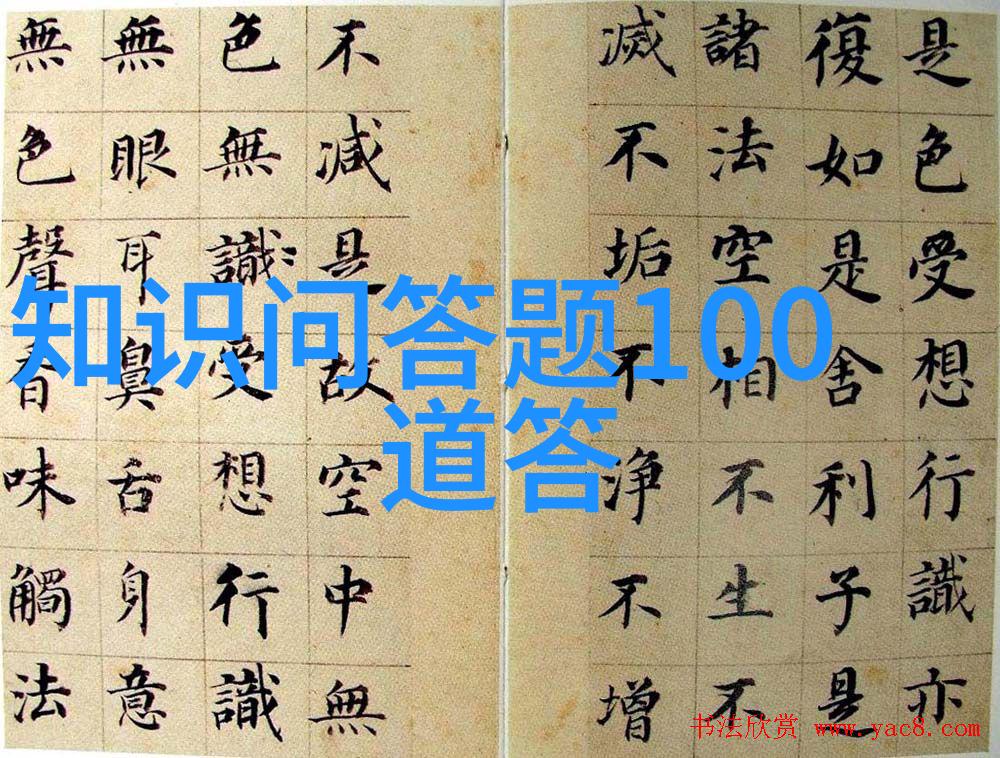 是色受想行識亦
復如是舍利子是
諸法空相不生不
滅不垢不淨不增
不減是故空中無
色無識受想行識
無眼耳鼻舌身意
無色聲香味觸法
知识问答题100
道答
书法欣赏 www.yac8.com